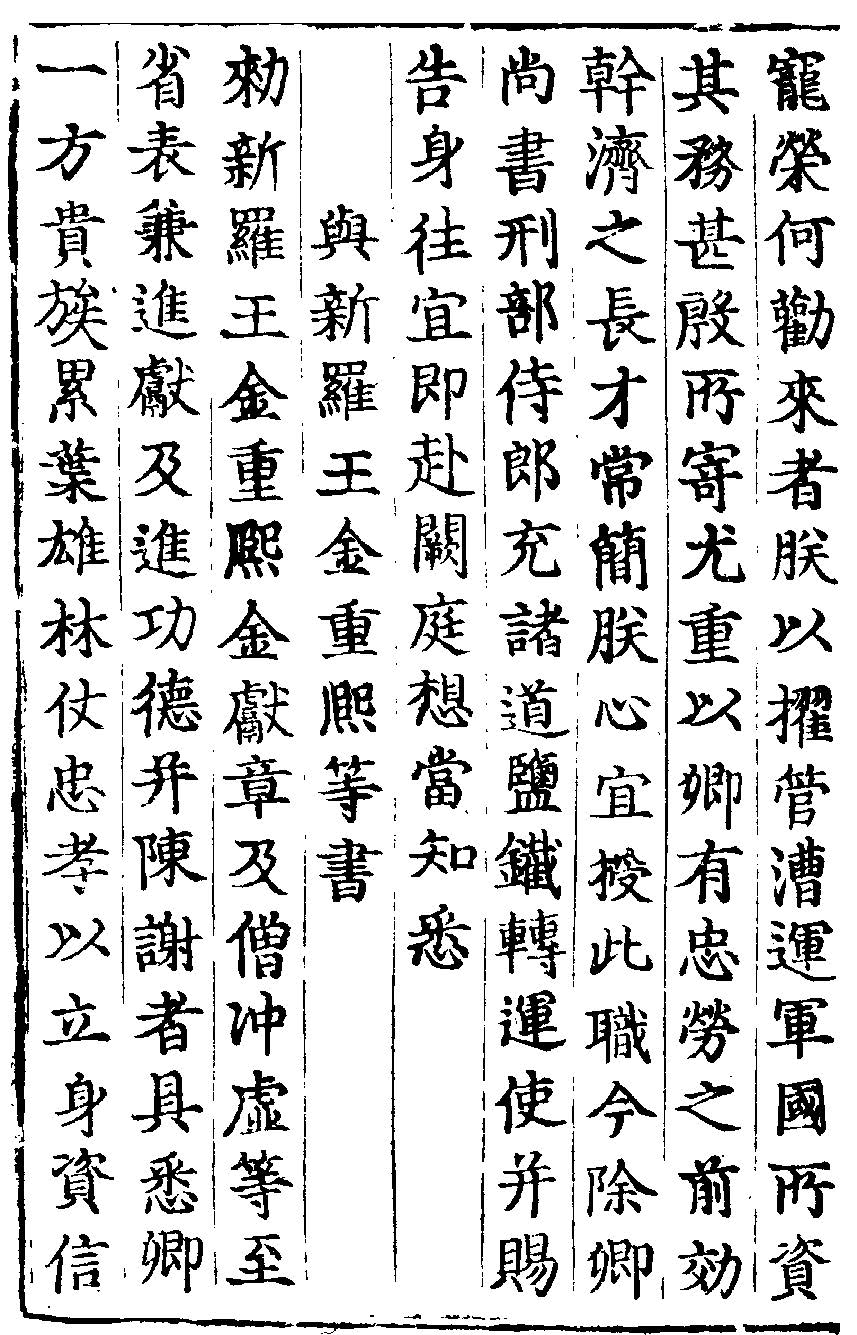 寵榮何勸來者朕以擢管漕運軍國所資
其務甚殷所寄尤重以卿有忠勞之前効
幹濟之長才常簡朕心宜授此職今除卿
尚書刑部侍郎充諸道鹽鐵轉運使并賜
告身往宜即赴闕庭想當知悉
與新羅王金重熈等書
勑新羅王金重熈金獻章及僧冲虛等至
省表兼進獻及進功德并陳謝者具悉卿
一方貴族累葉雄林仗忠孝以立身資信